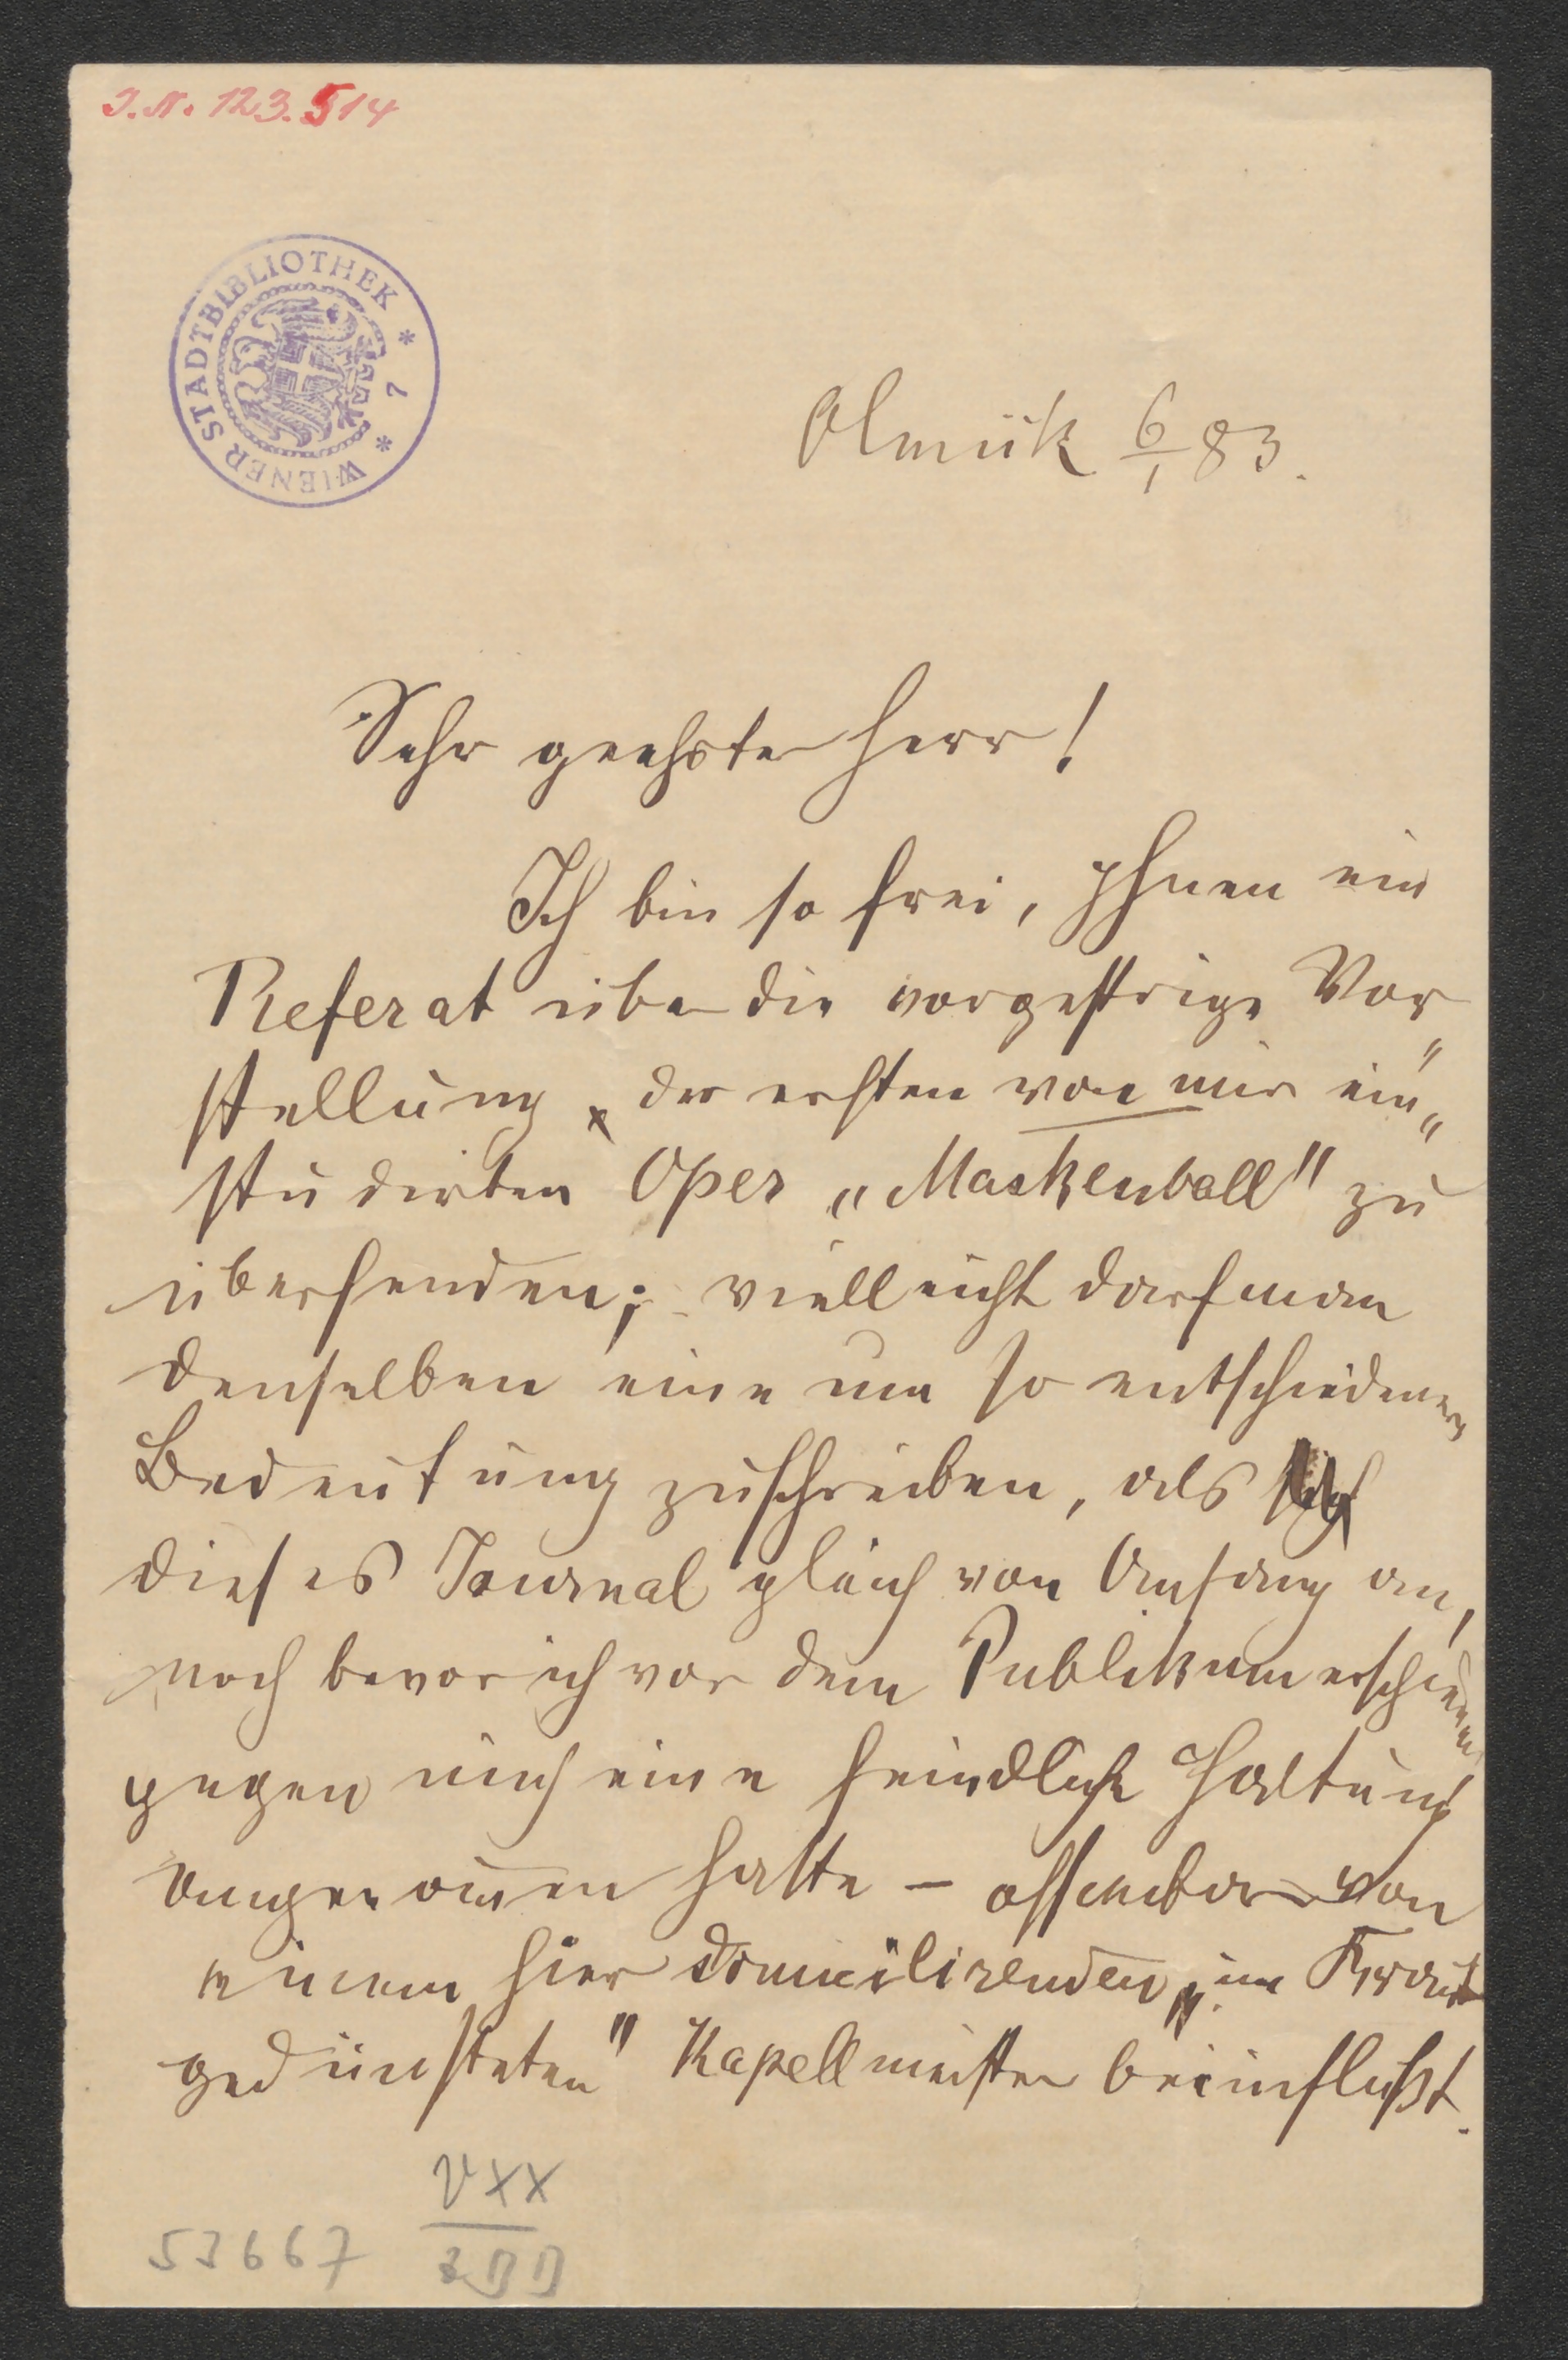 J.N. 123.514
WIENER STADTBIBLIOTHEK * 7 *
Olmütz 6/1 83.
Sehr geehrter Herr!
Ich bin so frei, Ihnen ein
Referat über die vorgestrige Vor
stellung der ersten von mir ein„
studirten Oper „Maskenball" zu
übersenden; vielleicht darf man
denselben eine um so entschiedenere
Bedeutung zuschreiben, als
dieses Journal gleich von Anfang an,
noch bevor ich vor dem Publikum erschienen
gegen mich eine feindliche Haltung
angenommen hatte – offenbar von
einem hier domicilirenden „im Kraut
gedünsteten" Kapellmeister beeinflußt.
53667